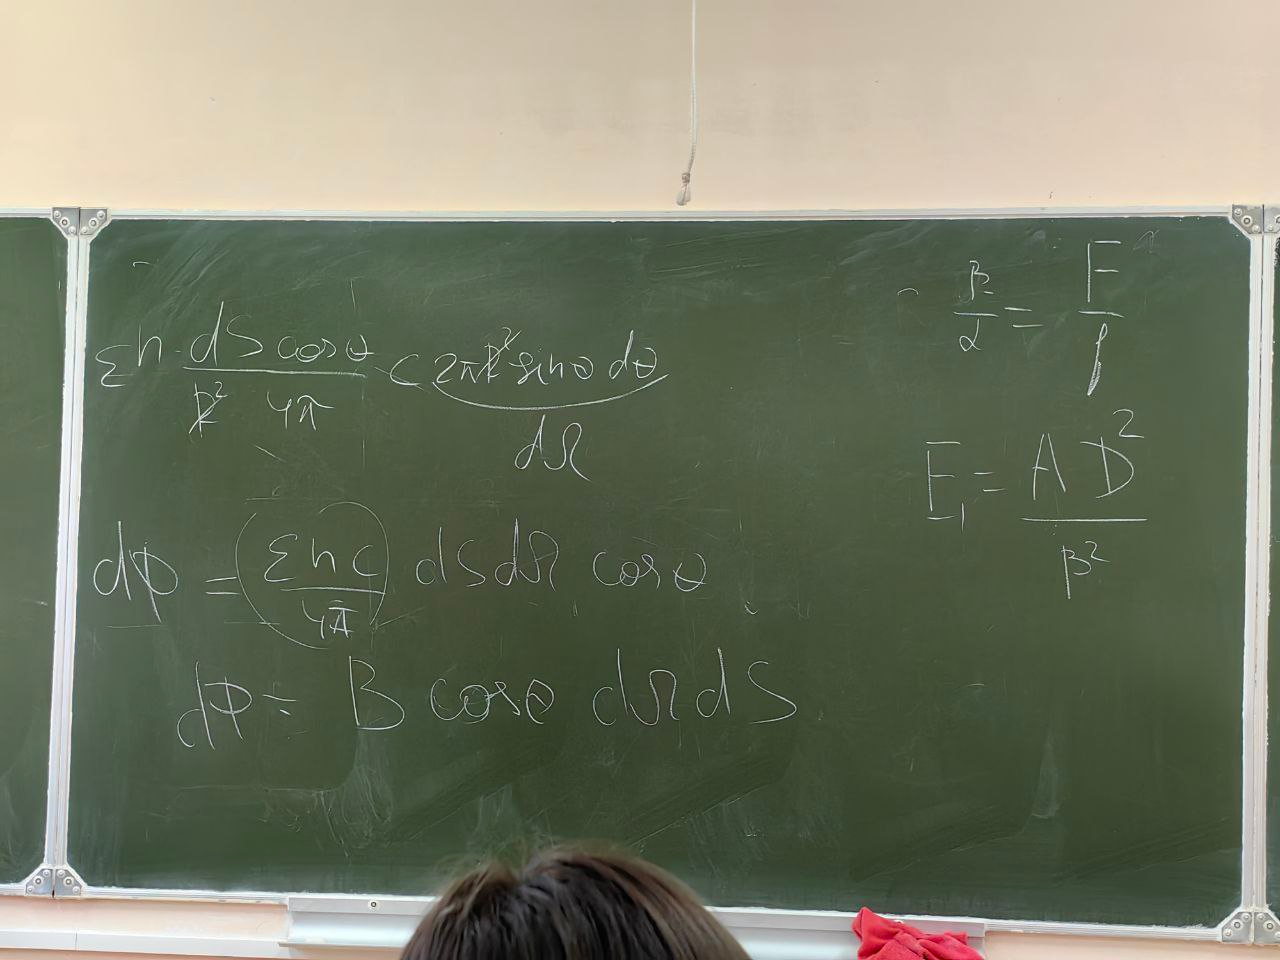 εn · dS cosθ / R² 4π · c 2πR² sinθ dθ
dΩ
dφ = (εnc / 4π) dS dΩ cosθ
dφ = B cosθ dΩ dS
β / α = F / f
E₁ = A D² / β²